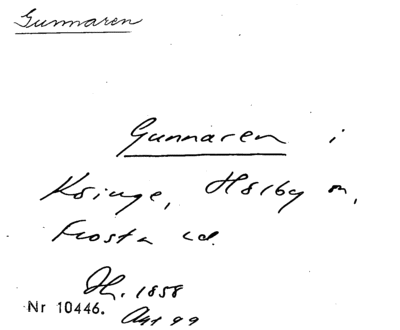 Gunnaren
Gunnaren i
Kringe, Hörby sn,
Frosta hd.
1858
Nr 10446.